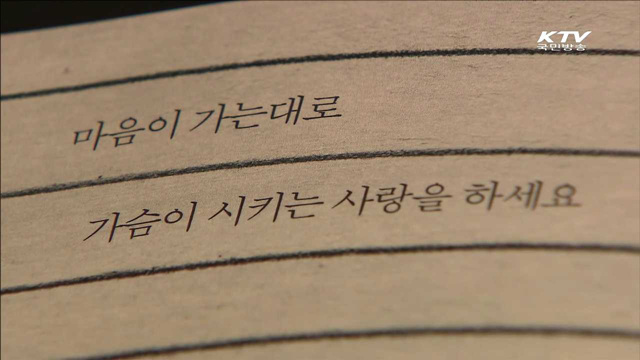 KTV
국민방송
마음이 가는대로
가슴이 시키는 사랑을 하세요